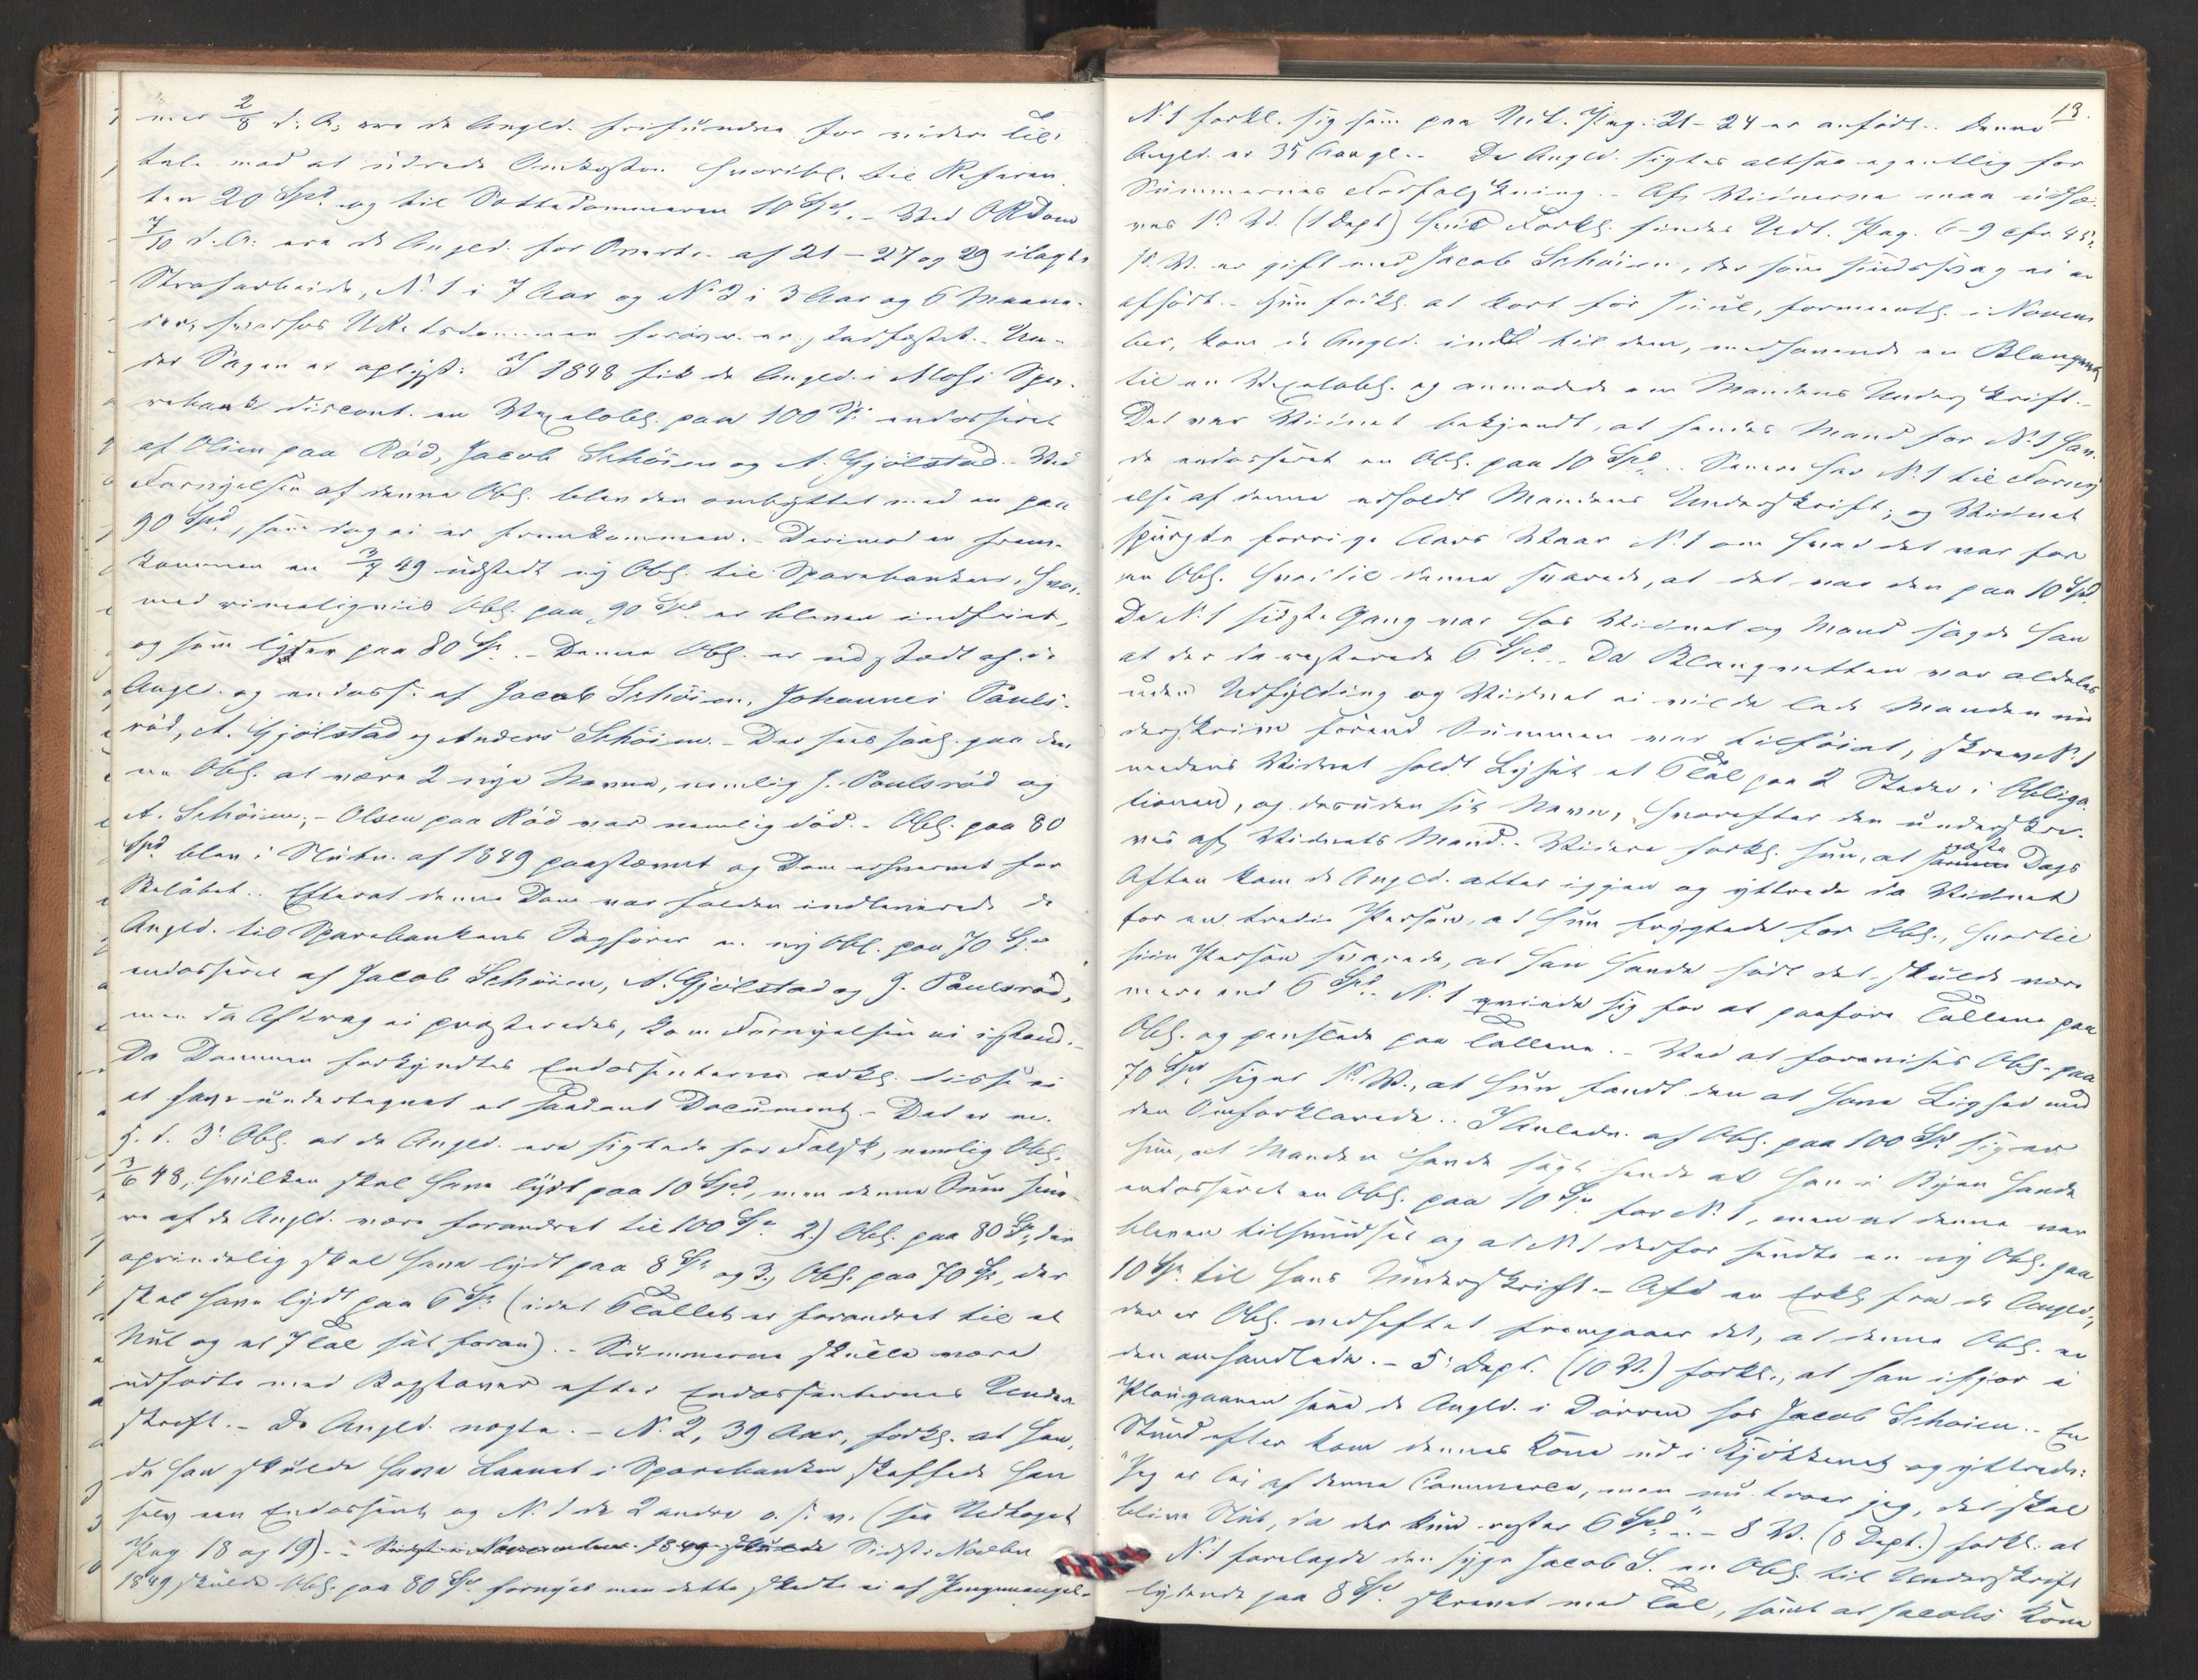 mer 2/8 d. A. ere de Angld. frifundne for videre Til-
tale mod at udrede Omkostn. hvoribl. til Referen-
ten 20 Spd og til Sættedommeren 10 Spd. - Ved ORDom
7/10 d. A. ere de Angld. for Overtr. af 21 - 27 og 29 ilagte
Strafarbeide, N. 1 i 7 Aar og N. 2 i 3 Aar og 6 Maane-
der, hvorhos URetsdommen forøvr. er stadfæstet. - Un-
der Sagen er oplyst: I 1848 fik de Angld. i Moss Spa-
rebank discont. en Vexelobl. paa 100 Sp endosseret
af Olsen paa Röd, Jacob Schöien og A. Gjölstad. - Ved
Fornyelsen af denne Obl. blev den ombyttet med en paa
90 Spd, som dog ei er fremkommen. - Derimod er frem-
kommen en 3/7 49 udstedt ny Obl. til Sparebanken, hvor-
med rimeligviis Obl. paa 90 Spd er bleven indfriet,
og som lyder paa 80 Sp. - Denne Obl. er udstædt af de
Angld. og endoss. af Jacob Schöien, Johannes Pauls-
röd, A. Gjölstad og Anders Schöien. - Der sees saal. paa den-
ne Obl. at være 2 nye Navne, nemlig J. Paulsröd og
A. Schöien; - Olsen paa Röd var nemlig död. - Obl. paa 80
Spd blev i Slutn. af 1849 paastævnt og Dom erhvervet for
Beløbet. - Efterat denne Dom var falden indleverede de
Angld. til Sparebankens Sagfører en ny Obl. paa 70 Sp.
endosseret af Jacob Schöien, A. Gjölstad og J. Paulsröd,
men da Afdrag ei præsteredes, kom Fornyelsen ei istand. -
Da Dommen forkyndtes Endossenterne erkl. disse ei
at have undertegnet et saadant Document. - Det er m.
H. t. 3 Obl. at de Angld. ere sigtede for Falsk, nemlig Obl.
3/6 48, hvilken skal have lydt paa 10 Spd, men denne Sum sene-
re af de Angld. være forandret til 100 Sp. 2.) Obl. paa 80 Sp, der
oprindelig skal have lydt paa 8 Sp og 3., Obl. paa 70 Sp, der
skal have lydt paa 6 Sp. (idet 6Tallet er forandret til et
Nul og et 7Tal sat foran). - Summerne skulle være
udførte med Bogstaver efter Endossenternes Under-
skrift. - De Angld. negte. - N. 2, 39 Aar, forkl. at han,
da han skulde have Laanet i Sparebanken skaffede han
selv een Endossent og N. 1 de 2 andre o. s. v. (see Udtoget
Pag 18 og 19). - Sidst i November 1849 skulde Sidst i Novbr
1849 skulde Obl. paa 80 Sp fornyes men dette skedte ei af Pengemangel. -
13.
N. 1 forkl. sig som paa Udt. Pag. 21 - 24 er anført. Denne
Angld. er 35 Aar gl. - De Angld. sigtes altsaa egentlig for
Summernes Forfalskning. - Af Vidnerne maa udhæ-
ves 1ste V. (1 Dept) hvis Forkl. findes Udt. Pag. 6-9 cfr. 45.
1ste V. er gift med Jacob Schöien, der som sindssvag ei er
afhört. - Hun forkl. at kort før Juul, formentl. i Novem-
ber, kom de Angld. ind til dem, medhavende en Blanquet
til en Vexelobl. og anmodede om Mandens Underskrift. -
Det var Vidnet bekjendt, at hendes Mand for N. 1 hav-
de endosseret en Obl. paa 10 Spd. - Senere har N. 1 til Forny-
else af denne erholdt Mandens Underskrift; og Vidnet
spurgte forrige Aars Vaar N. 1 om hvad det var for
en Obl. hvortil denne svarede, at det var den paa 10 Spd.
Da N. 1 sidste Gang var hos Vidnet og Mand sagde han
at der da resterede 6 Spd. - Da Blanquetten var aldeles
uden Udfylding og Vidnet ei vilde lade Manden un-
derskrive förend Summen var tilføiet, skrev N. 1
medens Vidnet holdt Lyset et 6Tal paa 2 Steder i Obliga-
tionen, og desuden sit Navn, hvorefter den underskre-
ves af Vidnets Mand. - Videre forkl. hun, at samme næste Dags
Aften kom de Angld. atter igjen og yttrede da Vidnet
for en tredie Person, at hun frygtede for Obl., hvortil
hiin Person svarede, at han havde hørt det skulde være
mere end 6 Spd. N. 1 gvinde sig for at paaføre Tallene paa
Obl. og penslede paa Tallene. - Ved at forevises Obl. paa
70 Spd siger 1ste V., at hun fandt den at have Lighed med
den Omforklarede. - I Anledn. af Obl. paa 100 Spd siger
hun, at Manden havde sagt hende at han i Byen havde
endosseret en Obl. paa 10 Sp. for N. 1, men at denne var
bleven tilsmudset og at N. 1 derfor sendte en ny Obl. paa
10 Sp. til hans Underskrift. - Af en Erkl. fra de Angld.,
der er Obl. vedheftet fremgaaer det, at denne Obl. er
den omhandlede. - 5 Dept. (10 V.) forkl., at han ifjor i
Plougaannen saae de Angld. i Dörren hos Jacob Schöien. - En
Stund efter kom dennes Kone ud i Kjökkenet og yttrede:
"Jeg er lei af denne Commerce, men nu troer jeg, det skal
blive Slut, da der kun rester 6 Spd". - 8 V. (8 Dept.) forkl. at
N. 1 forelagde den syge Jacob S. en Obl. til Underskrift
lydende paa 8 Spd. skrevet med Tal, samt at Jacobs Kone